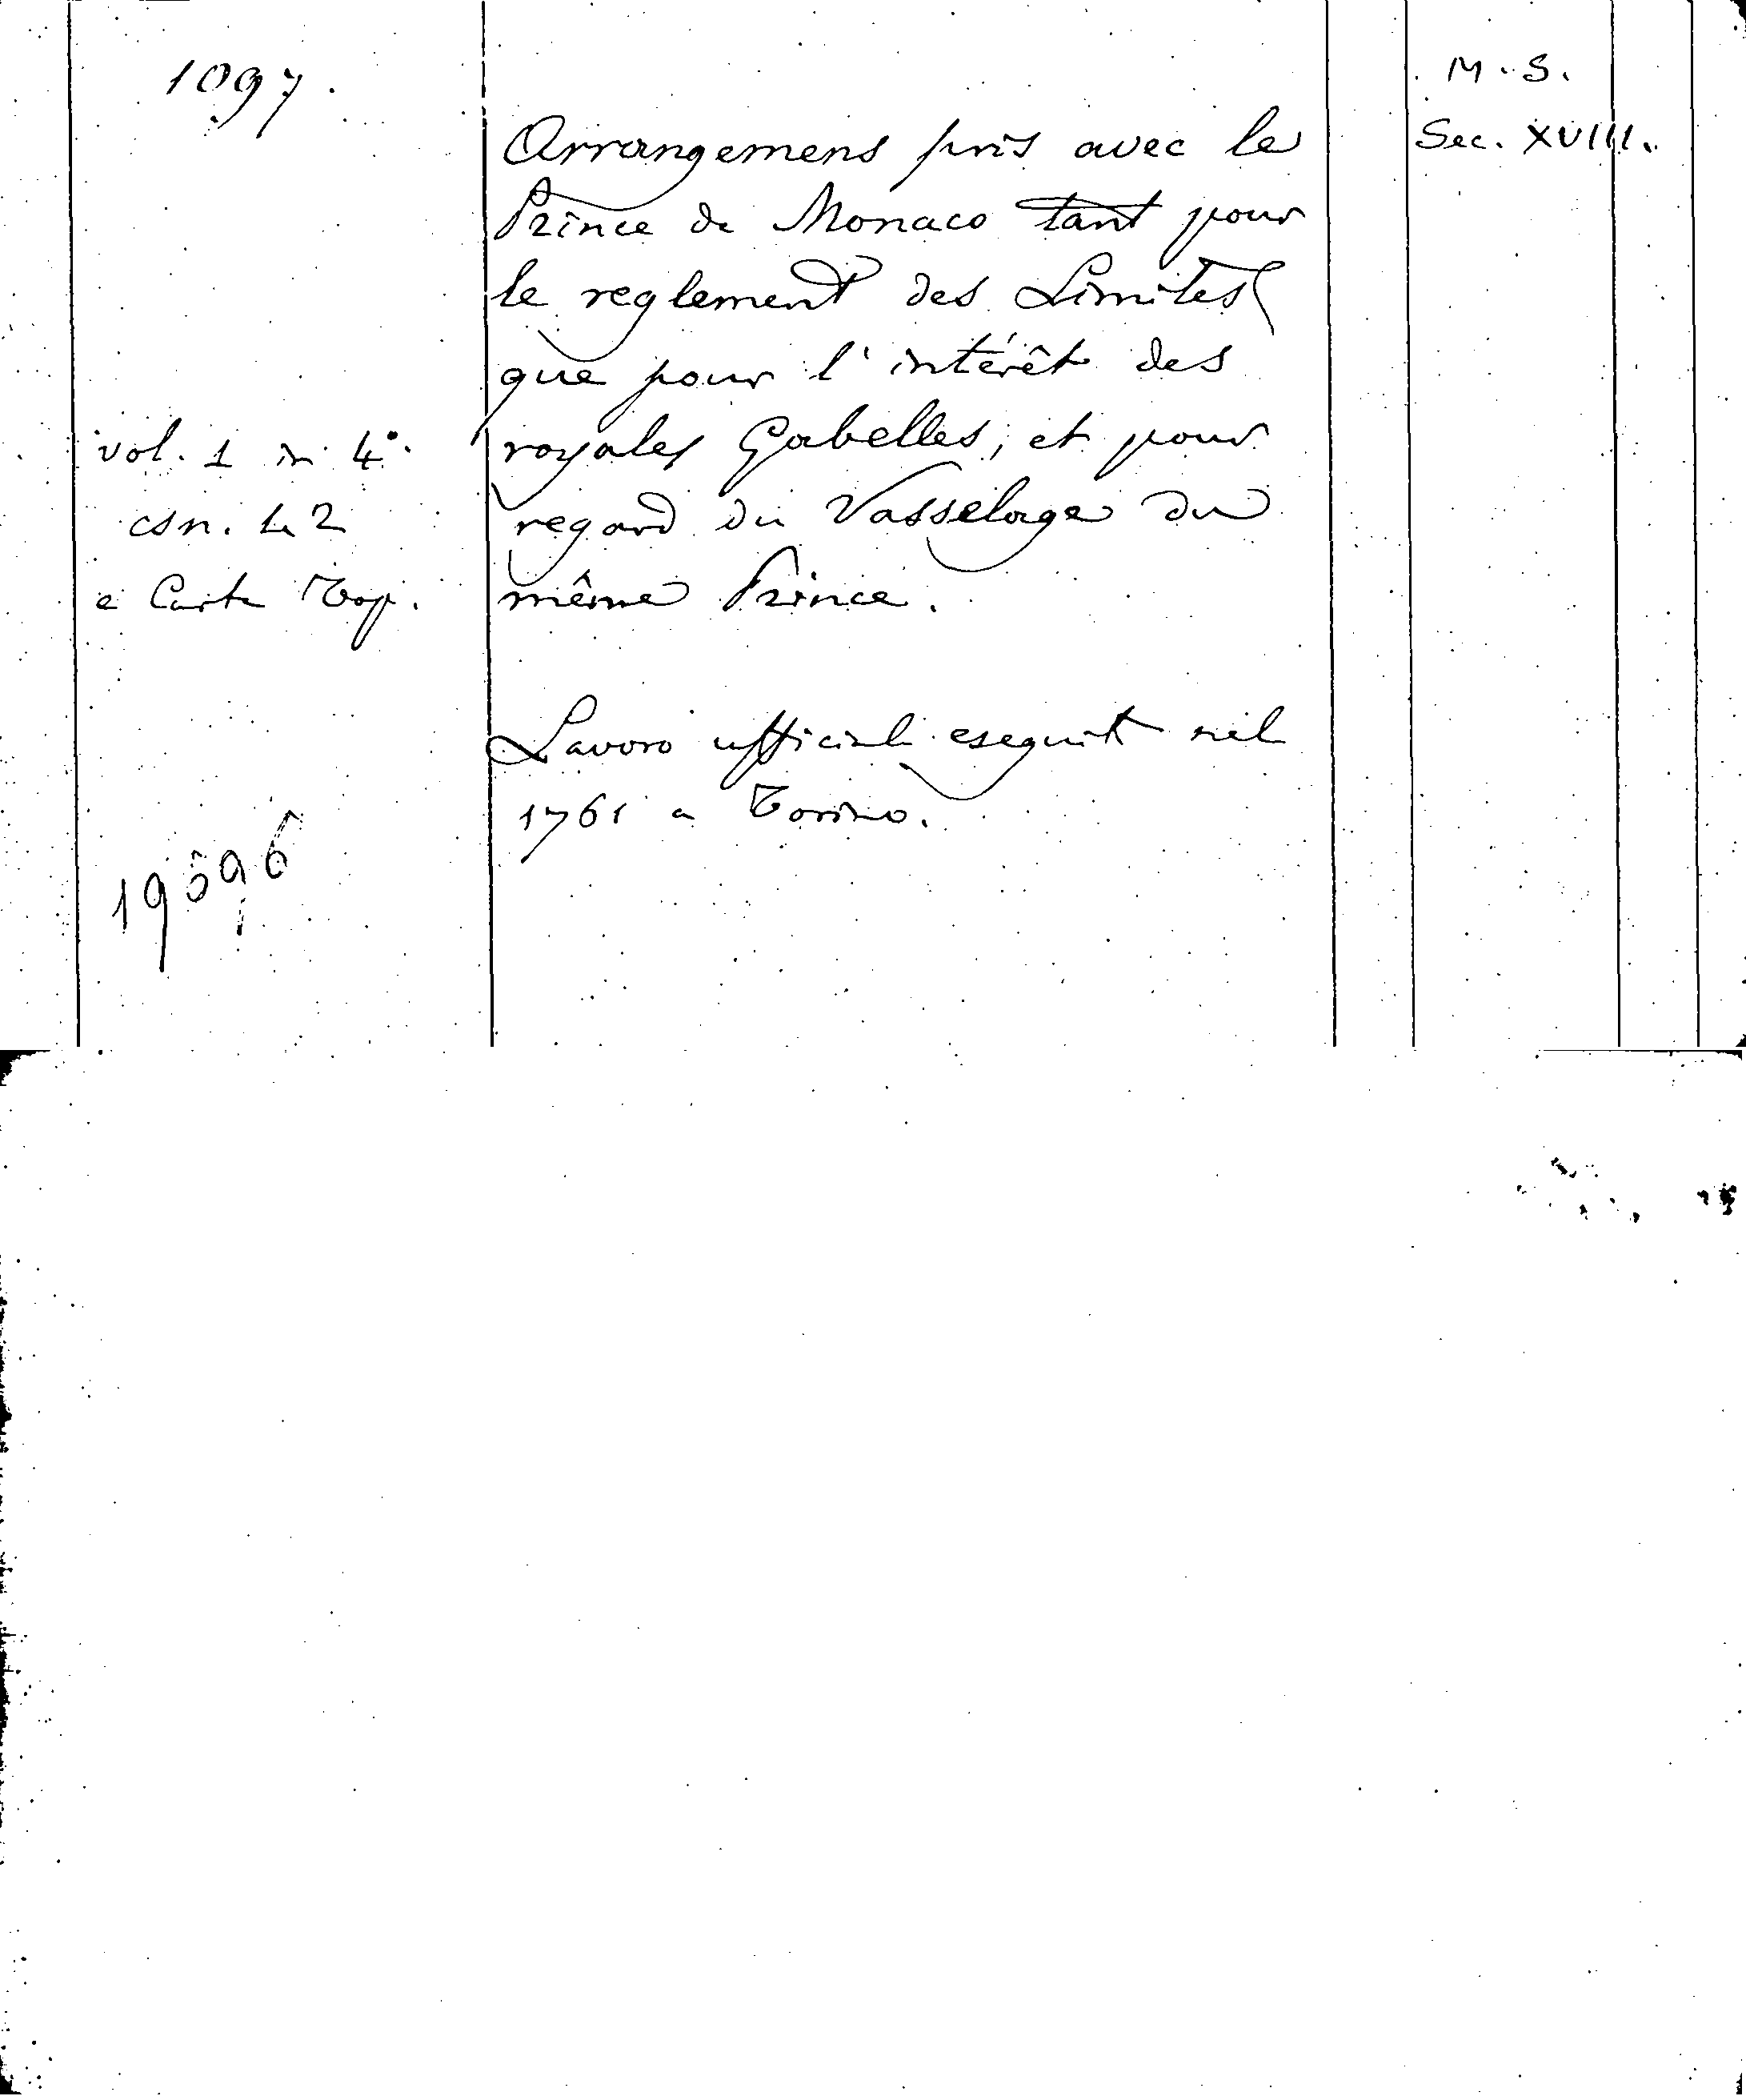 1097.
M. S.
Sec. XVIII.
Arrangemens pris avec le
Prince de Monaco tant pour
le reglement des Limites
que pour l'intérêt des
royales Gabelles, et pour
regard du Vasselage du
même Prince.
vol. 1 in 4°.
csn. 2
e Carta Top.
Lavoro ufficiale eseguito nel
1761 a Torino.
19596